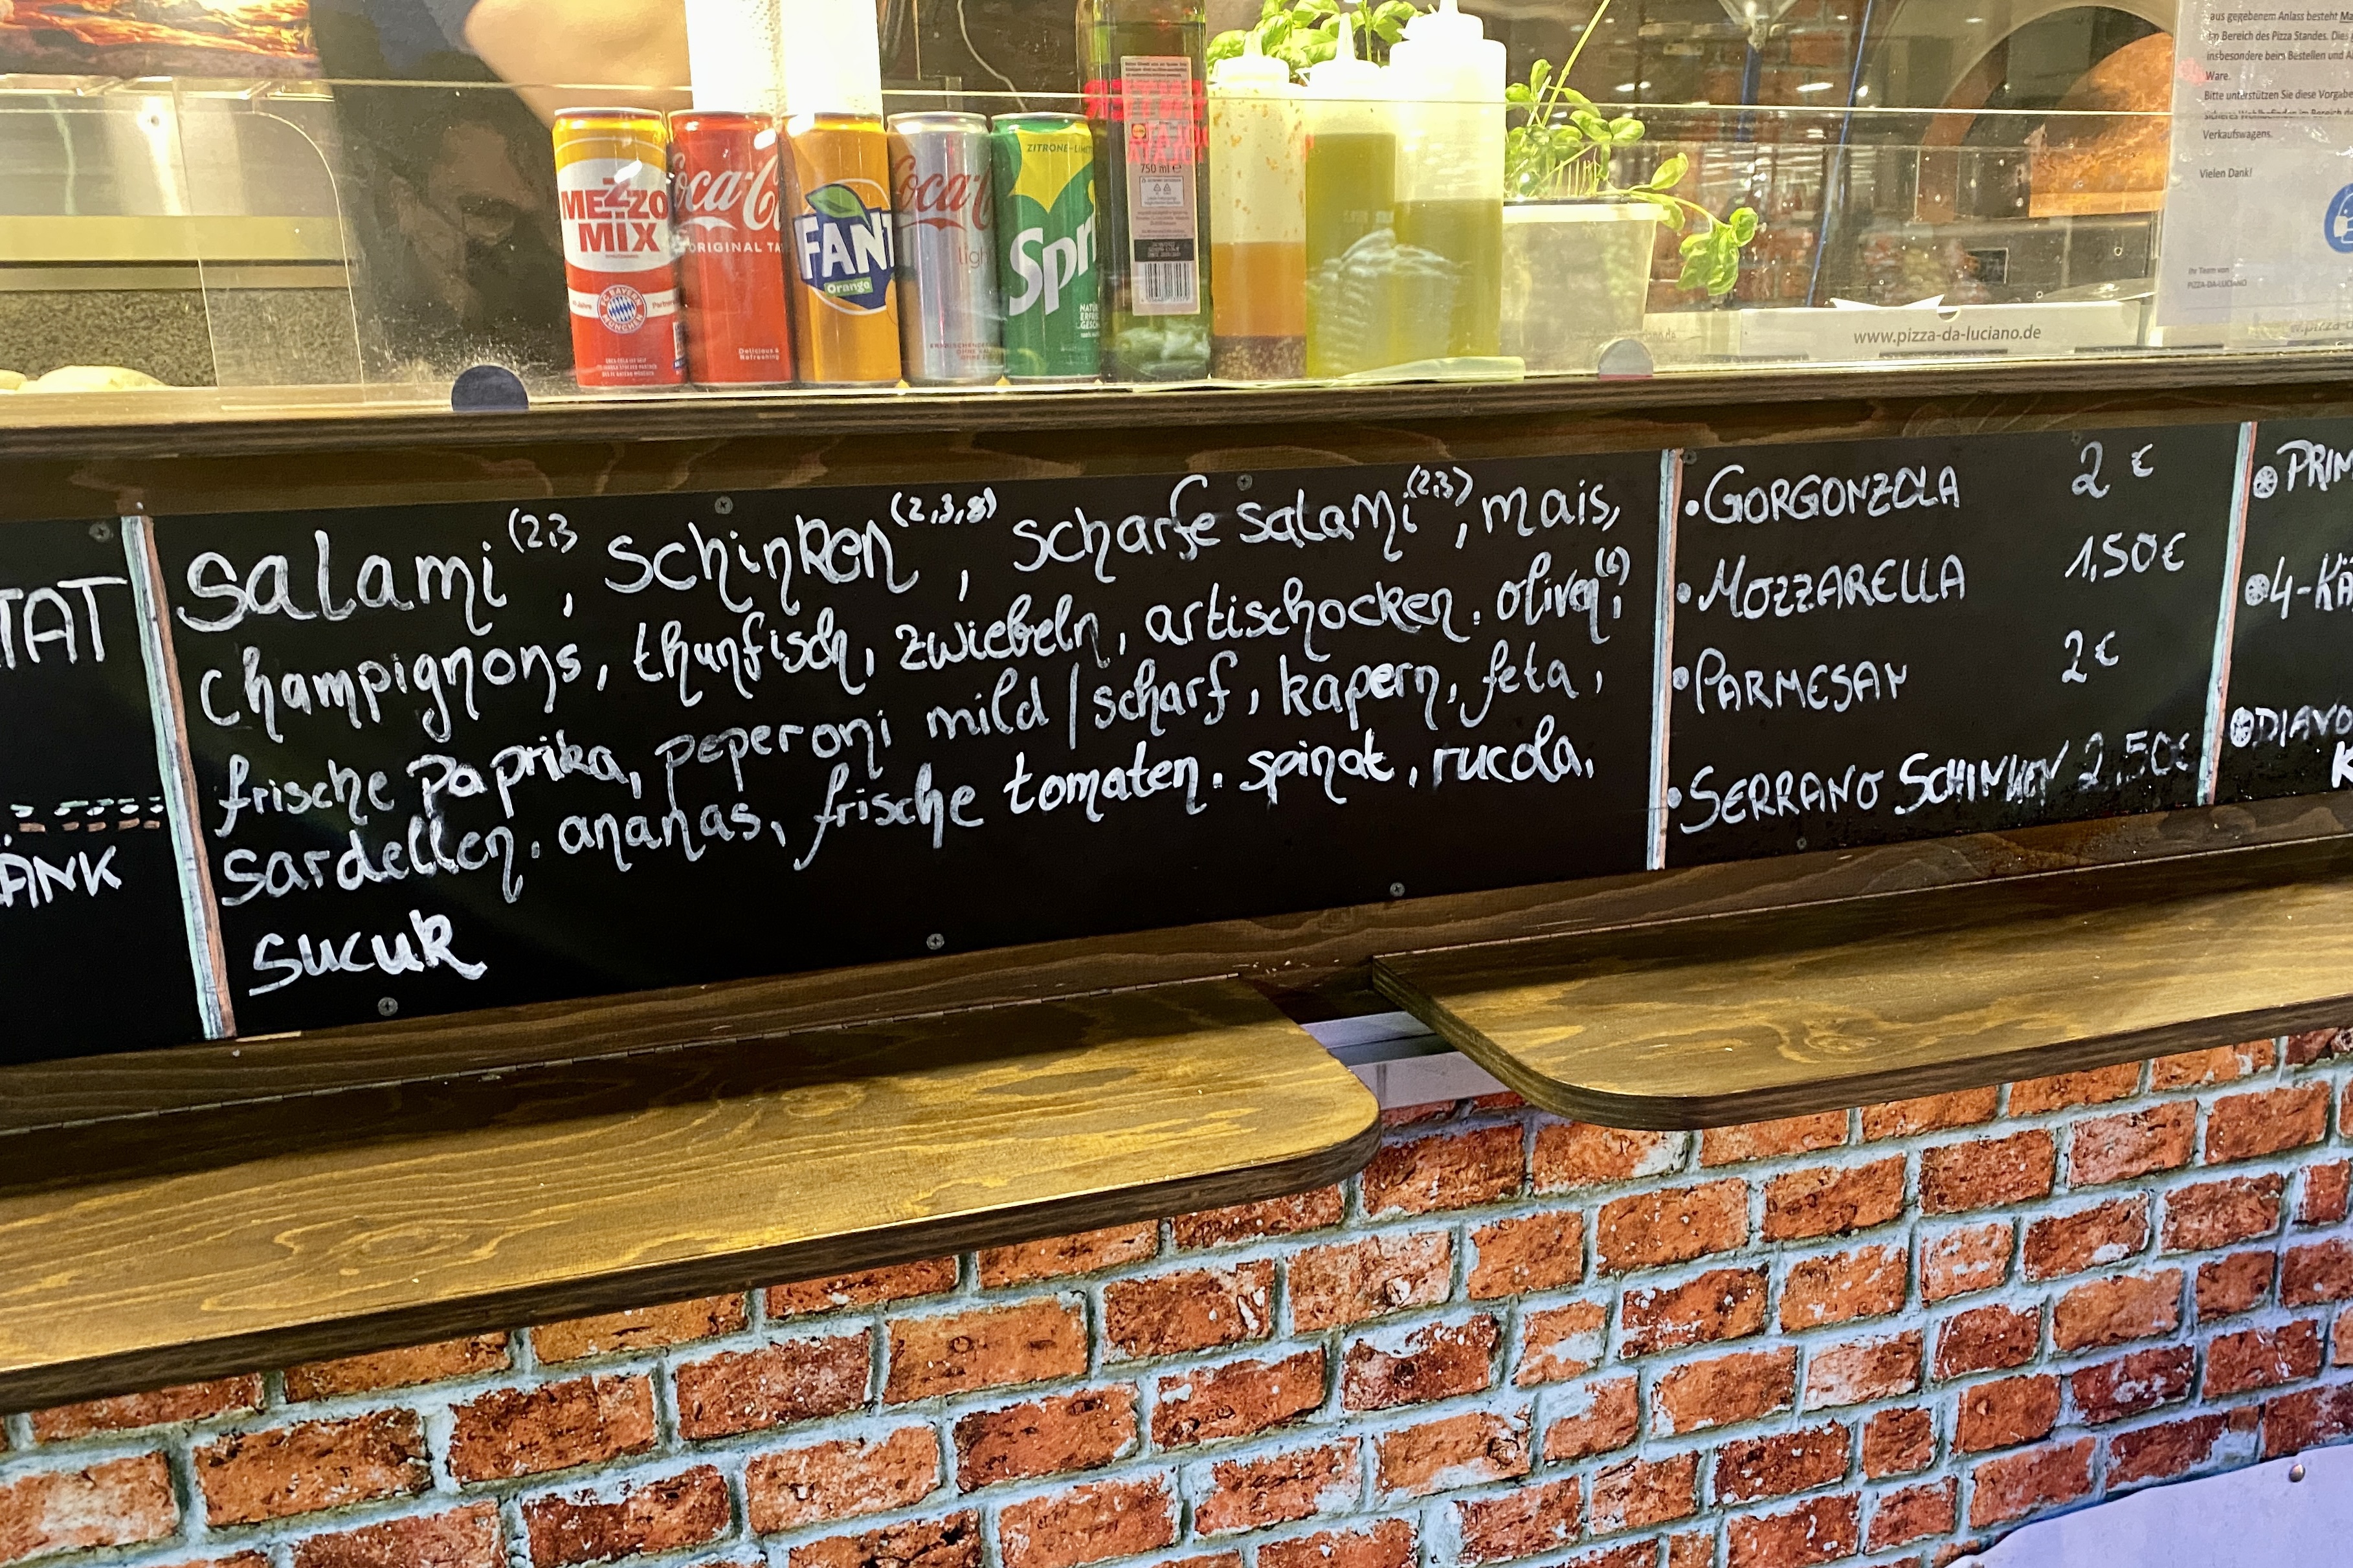 aus gegebenem Anlass besteht
im Bereich des Pizza Standes. Dies
insbesondere beim Bestellen und
Ware.
Bitte unterstützen Sie diese Vorgabe
Verkaufswagens.
Vielen Dank!
Ihr Team von
PIZZA-DA-LUCIANO
MEZZO
MIX
FC BAYERN
MÜNCHEN
Coca-C
ORIGINAL TA
Delicious &
Refreshing
FANT
Orange
Coca-C
light
ZITRONE-LIMET
Spri
750 ml e
www.pizza-da-luciano.de
TAT
ÄNK
Salami (2,3, Schinken (2,3,8), scharfe salami (2,3), mais,
Champignons, thunfisch, zwiebeln, artischocken, oliven(6),
frische Paprika, peperoni mild/scharf, kapern, feta,
Sardellen, ananas, frische tomaten, spinat, rucola,
sucuk
• GORGONZOLA 2 €
• MOZZARELLA 1,50€
• PARMESAN 2€
• SERRANO SCHINKEN 2,50€
PRIM
4-KÄ
DIAVO
K